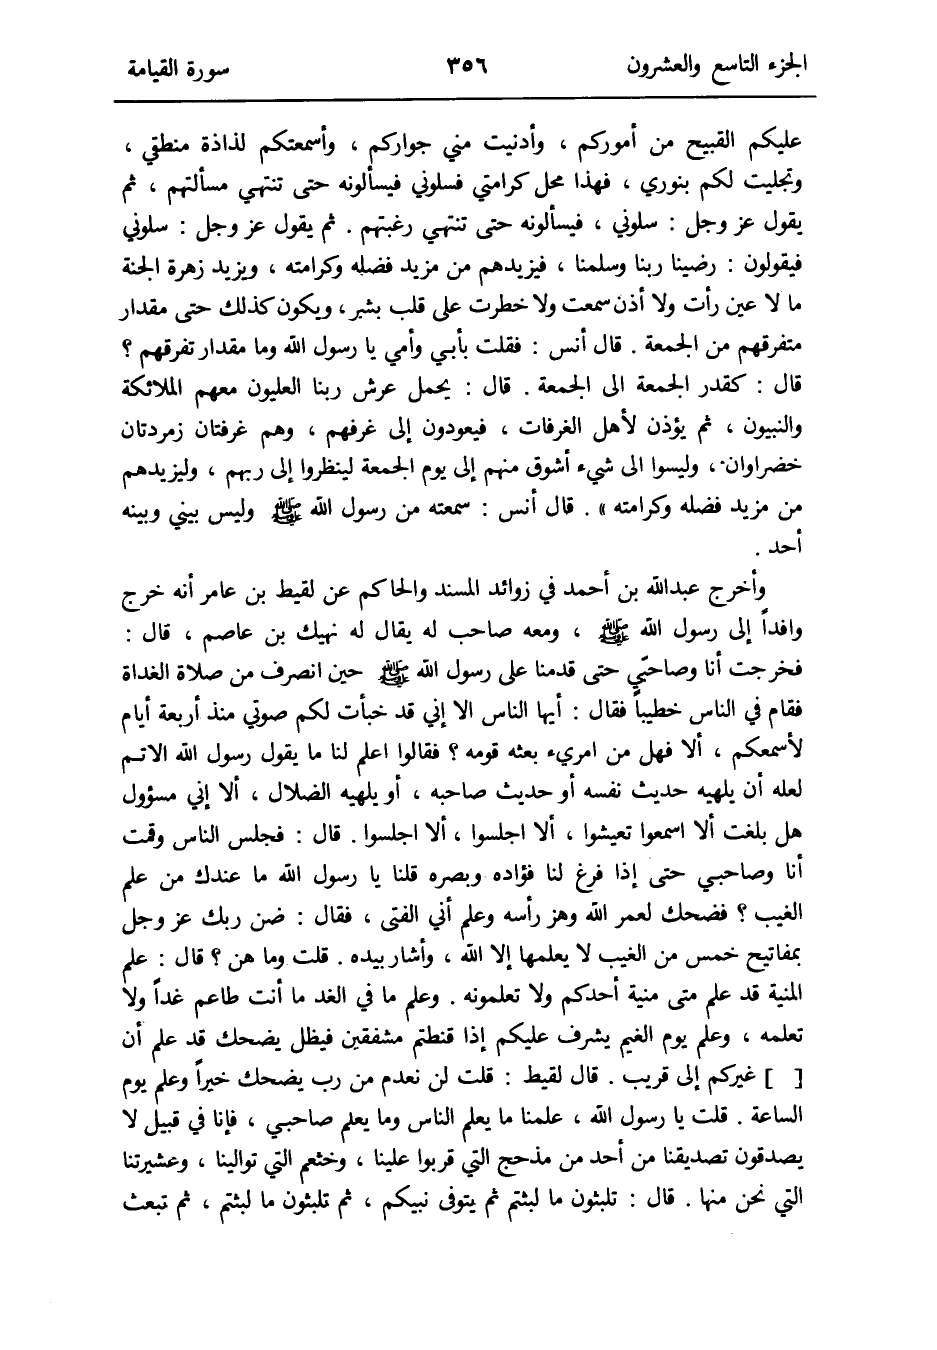 الجزء التاسع والعشرون ٣٥٦ سورة القيامة
عليكم القبيح من أموركم ، وأدنيت مني جواركم ، وأسمعتكم لذاذة منطقي ،
وتجليت لكم بنوري ، فهذا محل كرامتي فسلوني فيسألونه حتى تنتهي مسألتهم ، ثم
يقول عز وجل : سلوني ، فيسألونه حتى تنتهي رغبتهم . ثم يقول عز وجل : سلوني
فيقولون : رضينا ربنا وسلمنا ، فيزيدهم من مزيد فضله وكرامته ، ويزيد زهرة الجنة
ما لا عين رأت ولا أذن سمعت ولا خطرت على قلب بشر ، ويكون كذلك حتى مقدار
متفرقهم من الجمعة . قال أنس : فقلت بأبي وأمي يا رسول الله وما مقدار تفرقهم ؟
قال : كقدر الجمعة الى الجمعة . قال : يحمل عرش ربنا العليون معهم الملائكة
والنبيون ، ثم يؤذن لأهل الغرفات ، فيعودون إلى غرفهم ، وهم غرفتان زمردتان
خضراوان ، وليسوا الى شيء أشوق منهم إلى يوم الجمعة لينظروا إلى ربهم ، وليزيدهم
من مزيد فضله وكرامته » . قال أنس : سمعته من رسول الله ﷺ وليس بيني وبينه
أحد .
وأخرج عبدالله بن أحمد في زوائد المسند والحاكم عن لقيط بن عامر أنه خرج
وافداً إلى رسول الله ﷺ ، ومعه صاحب له يقال له نهيك بن عاصم ، قال :
فخرجت أنا وصاحبي حتى قدمنا على رسول الله ﷺ حين انصرف من صلاة الغداة
فقام في الناس خطيباً فقال : أيها الناس الا إني قد خبأت لكم صوتي منذ أربعة أيام
لأسمعكم ، ألا فهل من امريء بعثه قومه ؟ فقالوا اعلم لنا ما يقول رسول الله الاتم
لعله أن يلهيه حديث نفسه أو حديث صاحبه ، أو يلهيه الضلال ، ألا إني مسؤول
هل بلغت ألا اسمعوا تعيشوا ، ألا اجلسوا ، ألا اجلسوا . قال : فجلس الناس وقمت
أنا وصاحبي حتى إذا فرغ لنا فؤاده وبصره قلنا يا رسول الله ما عندك من علم
الغيب ؟ فضحك لعمر الله وهز رأسه وعلم أني الفتى ، فقال : ضن ربك عز وجل
بمفاتيح خمس من الغيب لا يعلمها إلا الله ، وأشار بيده . قلت وما هن ؟ قال : علم
المنية قد علم متى منية أحدكم ولا تعلمونه . وعلم ما في الغد ما أنت طاعم غداً ولا
تعلمه ، وعلم يوم الغيم يشرف عليكم إذا قنطتم مشفقين فيظل يضحك قد علم أن
[ ] غيركم إلى قريب . قال لقيط : قلت لن نعدم من رب يضحك خيراً وعلم يوم
الساعة . قلت يا رسول الله ، علمنا ما يعلم الناس وما يعلم صاحبي ، فإنا في قبيل لا
يصدقون تصديقنا من أحد من مذحج التي قربوا علينا ، وخثعم التي توالينا ، وعشيرتنا
التي نحن منها . قال : تلبثون ما لبثتم ثم يتوفى نبيكم ، ثم تلبثون ما لبثتم ، ثم تبعث